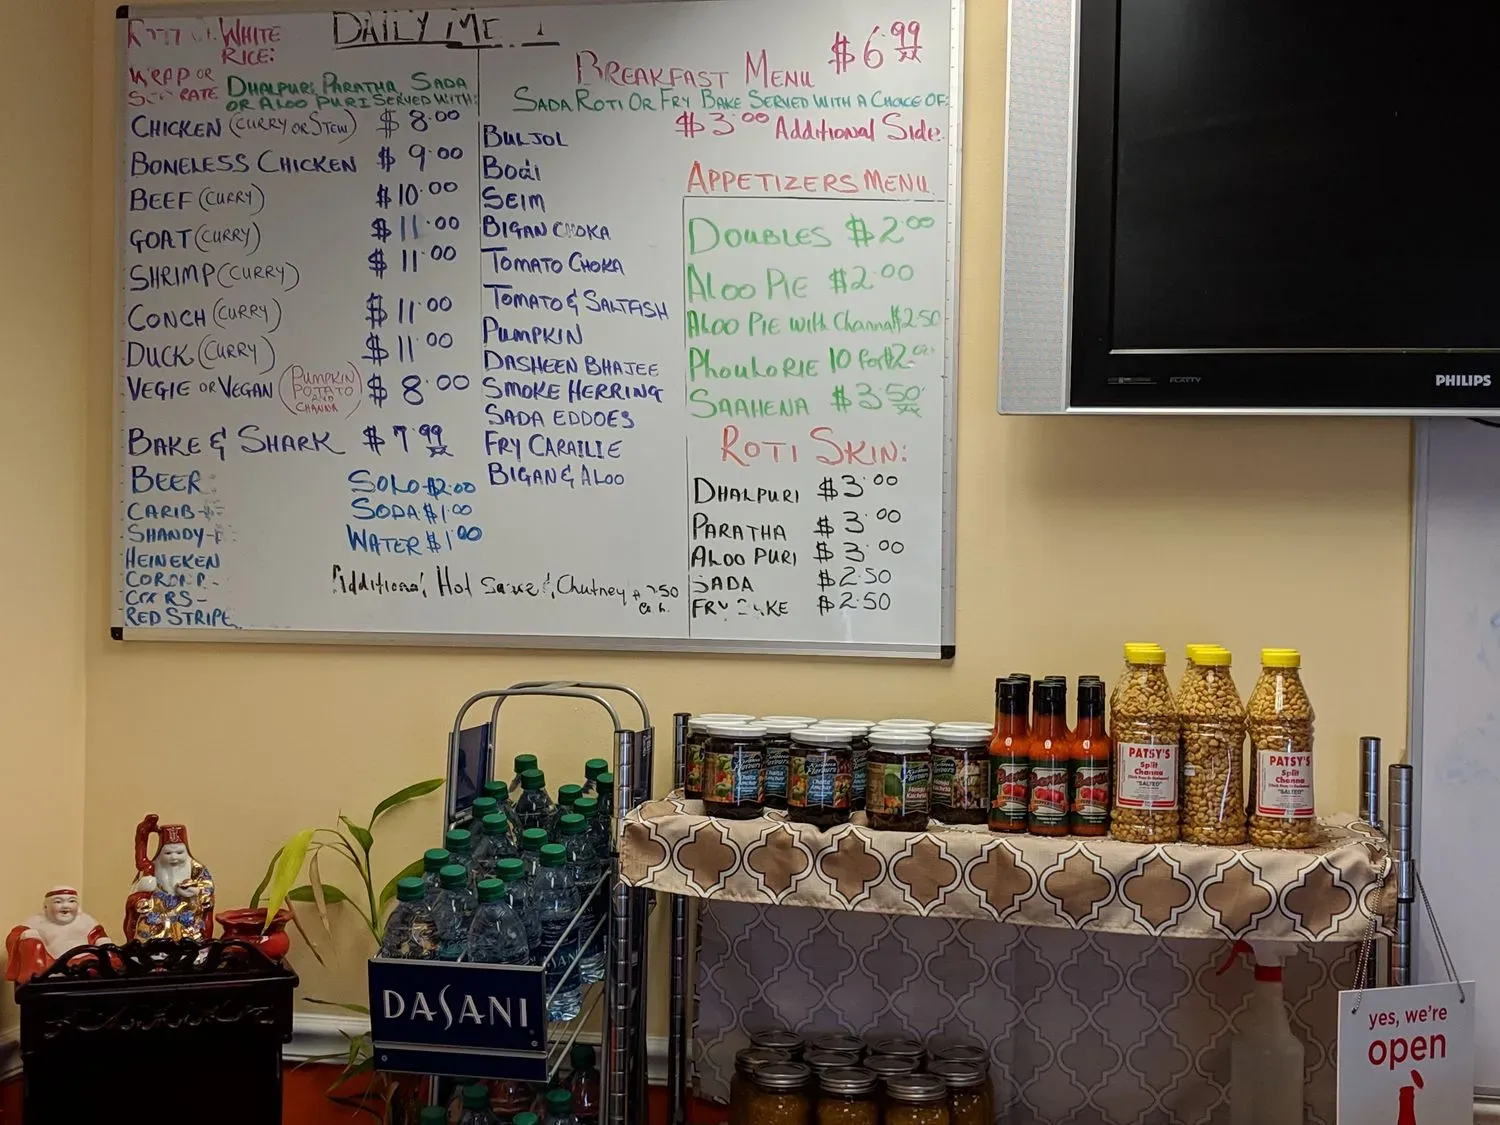 WHITE
RICE:
DAILY ME
WRAP OR
DHALPURI, PARATHA, SADA
OR ALOO PURI SERVED WITH:
CHICKEN (CURRY OR STEW) $8.00
BONELESS CHICKEN $9.00
BEEF (CURRY) $10.00
GOAT (CURRY) $11.00
SHRIMP (CURRY) $11.00
CONCH (CURRY) $11.00
DUCK (CURRY) $11.00
VEGIE OR VEGAN (PUMPKIN POTATO AND CHANNA) $8.00
BAKE & SHARK $7.99
BEER
CARIB-
SHANDY-
HEINEKEN
RED STRIPE
SOLO $2.00
SODA $1.00
WATER $1.00
Additional Hot Sauce & Chutney
BREAKFAST MENU $6.99
SADA ROTI OR FRY BAKE SERVED WITH A CHOICE OF:
$3.00 Additional Side.
BULJOL
BODI
SEIM
BIGAN CHOKA
TOMATO CHOKA
TOMATO & SALTFISH
PUMPKIN
DASHEEN BHAJEE
SMOKE HERRING
SADA EDDOES
FRY CARAILIE
BIGAN & ALOO
APPETIZERS MENU
DOUBLES $2.00
ALOO PIE $2.00
ALOO PIE with Channa $2.50
PhouloRIE 10 For $2.00
SAAHENA $3.50
ROTI SKIN:
DHALPURI $3.00
PARATHA $3.00
ALOO PURI $3.00
SADA $2.50
FRY BAKE $2.50
PHILIPS
PATSY'S
Split
Channa
"SALTED"
PATSY'S
Split
Channa
"SALTED"
DASANI
yes, we're
open